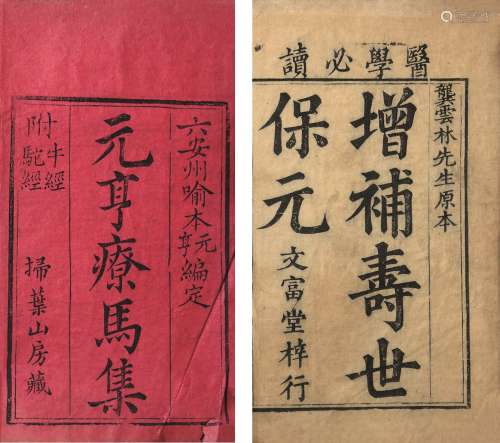 六安州喻本元亨編定
元亨療馬集
附牛經駝經
掃葉山房藏
醫學必讀
龔雲林先生原本
增補壽世
保元
文富堂梓行